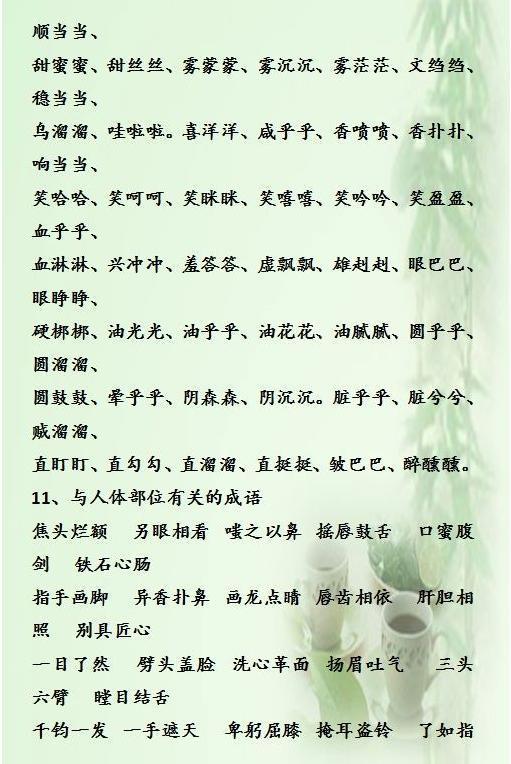 顺当当、
甜蜜蜜、甜丝丝、雾蒙蒙、雾沉沉、雾茫茫、文绉绉、
稳当当、
乌溜溜、哇啦啦。喜洋洋、咸乎乎、香喷喷、香扑扑、
响当当、
笑哈哈、笑呵呵、笑眯眯、笑嘻嘻、笑吟吟、笑盈盈、
血乎乎、
血淋淋、兴冲冲、羞答答、虚飘飘、雄赳赳、眼巴巴、
眼睁睁、
硬梆梆、油光光、油乎乎、油花花、油腻腻、圆乎乎、
圆溜溜、
圆鼓鼓、晕乎乎、阴森森、阴沉沉。脏乎乎、脏兮兮、
贼溜溜、
直盯盯、直勾勾、直溜溜、直挺挺、皱巴巴、醉醺醺。
11、与人体部位有关的成语
焦头烂额 另眼相看 嗤之以鼻 摇唇鼓舌 口蜜腹
剑 铁石心肠
指手画脚 异香扑鼻 画龙点睛 唇齿相依 肝胆相
照 别具匠心
一目了然 劈头盖脸 洗心革面 扬眉吐气 三头
六臂 瞠目结舌
千钧一发 一手遮天 卑躬屈膝 掩耳盗铃 了如指